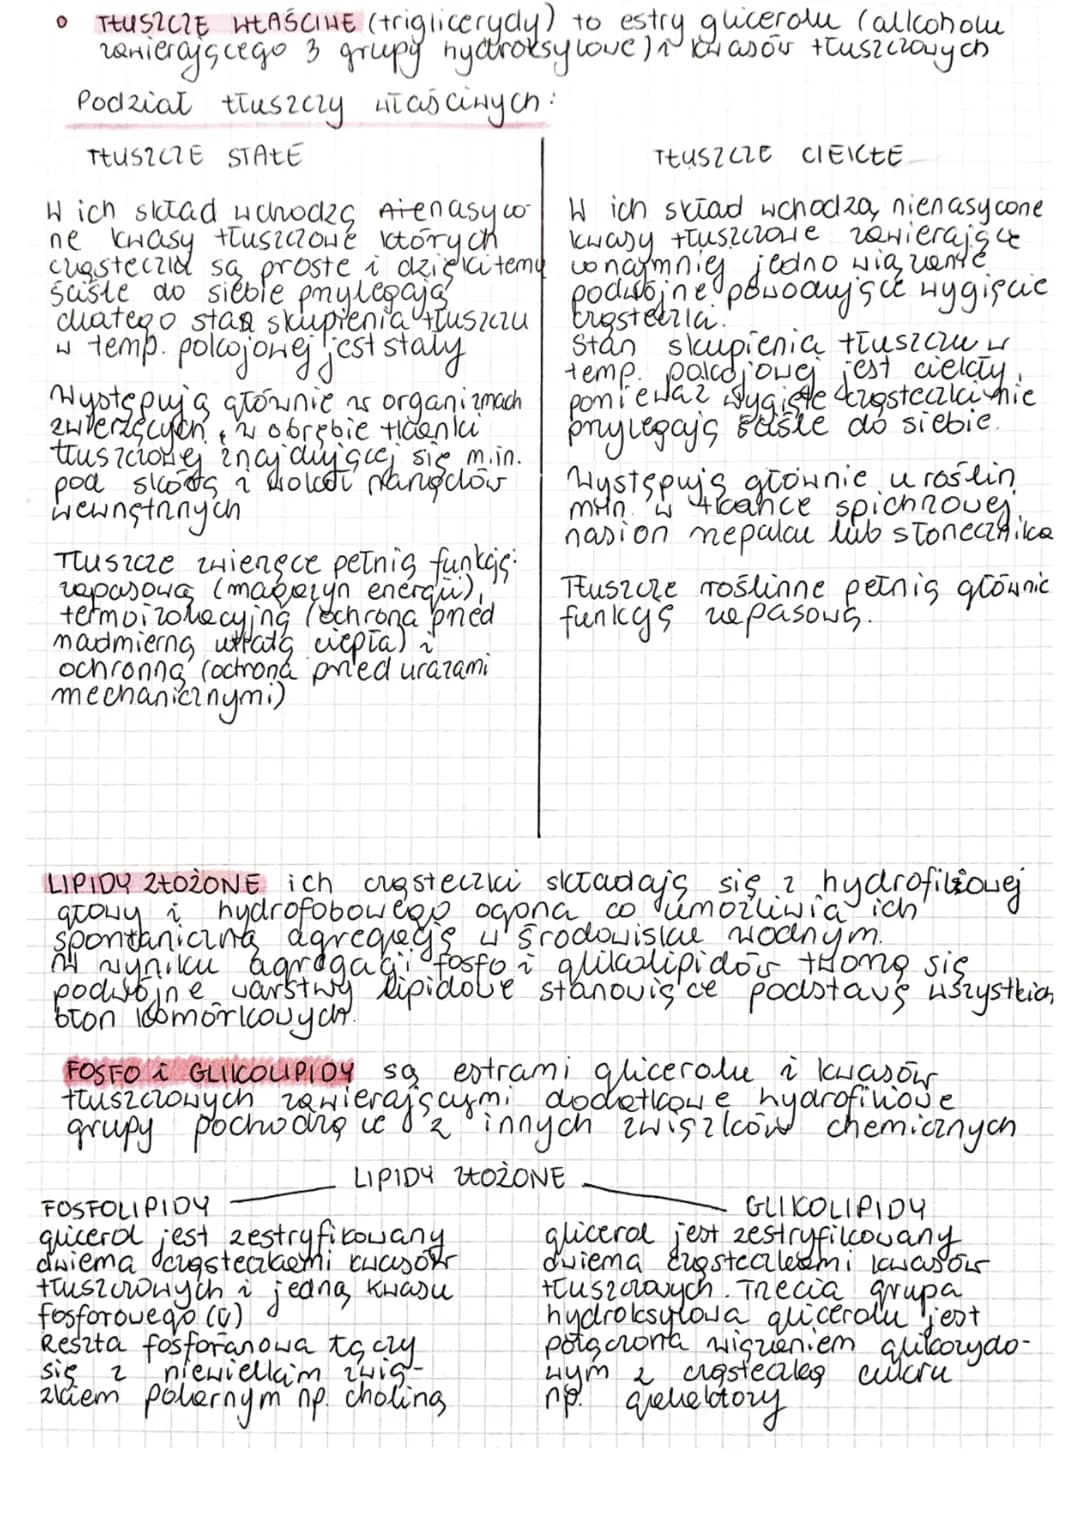 • TŁUSZCZE WŁAŚCIWE (triglicerydy) to estry glicerolu (alkoholu
zawierającego 3 grupy hydroksylowe) i kwasów tłuszczowych
Podział tłuszczy właściwych:
TŁUSZCZE STAŁE
W ich skład wchodzą nienasyco-
ne kwasy tłuszczowe których
cząsteczki są proste i dzięki temu
ściśle do siebie przylegają
dlatego stan skupienia tłuszczu
w temp. pokojowej jest stały
Występują głównie w organizmach
zwierzęcych, w obrębie tkanki
tłuszczowej znajdującej się m.in.
pod skórą i wokół narządów
wewnętrznych
Tłuszcze zwierzęce pełnią funkcję:
zapasową (magazyn energii),
termoizolacyjną (ochrona przed
nadmierną utratą ciepła) i
ochronną (ochrona przed urazami
mechanicznymi)
TŁUSZCZE CIEKŁE
W ich skład wchodzą nienasycone
kwasy tłuszczowe zawierające
conajmniej jedno wiązanie
podwójne powodujące wygięcie
cząsteczki.
Stan skupienia tłuszczu w
temp. pokojowej jest ciekły,
ponieważ wygięte cząsteczki nie
przylegają ściśle do siebie.
Występują głównie u roślin
m.in. w tkance spichrzowej
nasion rzepaku lub słonecznika
Tłuszcze roślinne pełnią głównie
funkcję zapasową.
LIPIDY ZŁOŻONE ich cząsteczki składają się z hydrofilowej
głowy i hydrofobowego ogona co umożliwia ich
spontaniczną agregację w środowisku wodnym.
W wyniku agregacji fosfo i glikolipidów tworzą się
podwójne warstwy lipidowe stanowiące podstawę wszystkich
błon komórkowych.
FOSFO i GLIKOLIPIDY są estrami glicerolu i kwasów
tłuszczowych zawierającymi dodatkowe hydrofilowe
grupy pochodzące z innych związków chemicznych
LIPIDY ZŁOŻONE
FOSFOLIPIDY
glicerol jest zestryfikowany
dwiema cząsteczkami kwasów
tłuszczowych i jedną kwasu
fosforowego (V)
Reszta fosforanowa łączy
się z niewielkim związ-
kiem polarnym np. choliną
GLIKOLIPIDY
glicerol jest zestryfikowany
dwiema cząsteczkami kwasów
tłuszczowych. Trzecia grupa
hydroksylowa glicerolu jest
połączona wiązaniem glikozydo-
wym z cząsteczką cukru
np. galaktozy